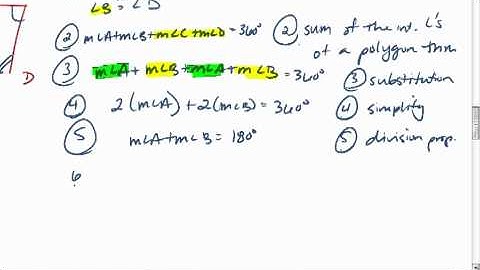 ∠B ≅ ∠D
② m∠A+m∠B+m∠C+m∠D=360° ② sum of the int. ∠'s
of a polygon thm.
D
③ m∠A+m∠B+m∠A+m∠B=360° ③ substitution
④ 2(m∠A)+2(m∠B)=360° ④ simplify
⑤ m∠A+m∠B=180° ⑤ division prop.
6